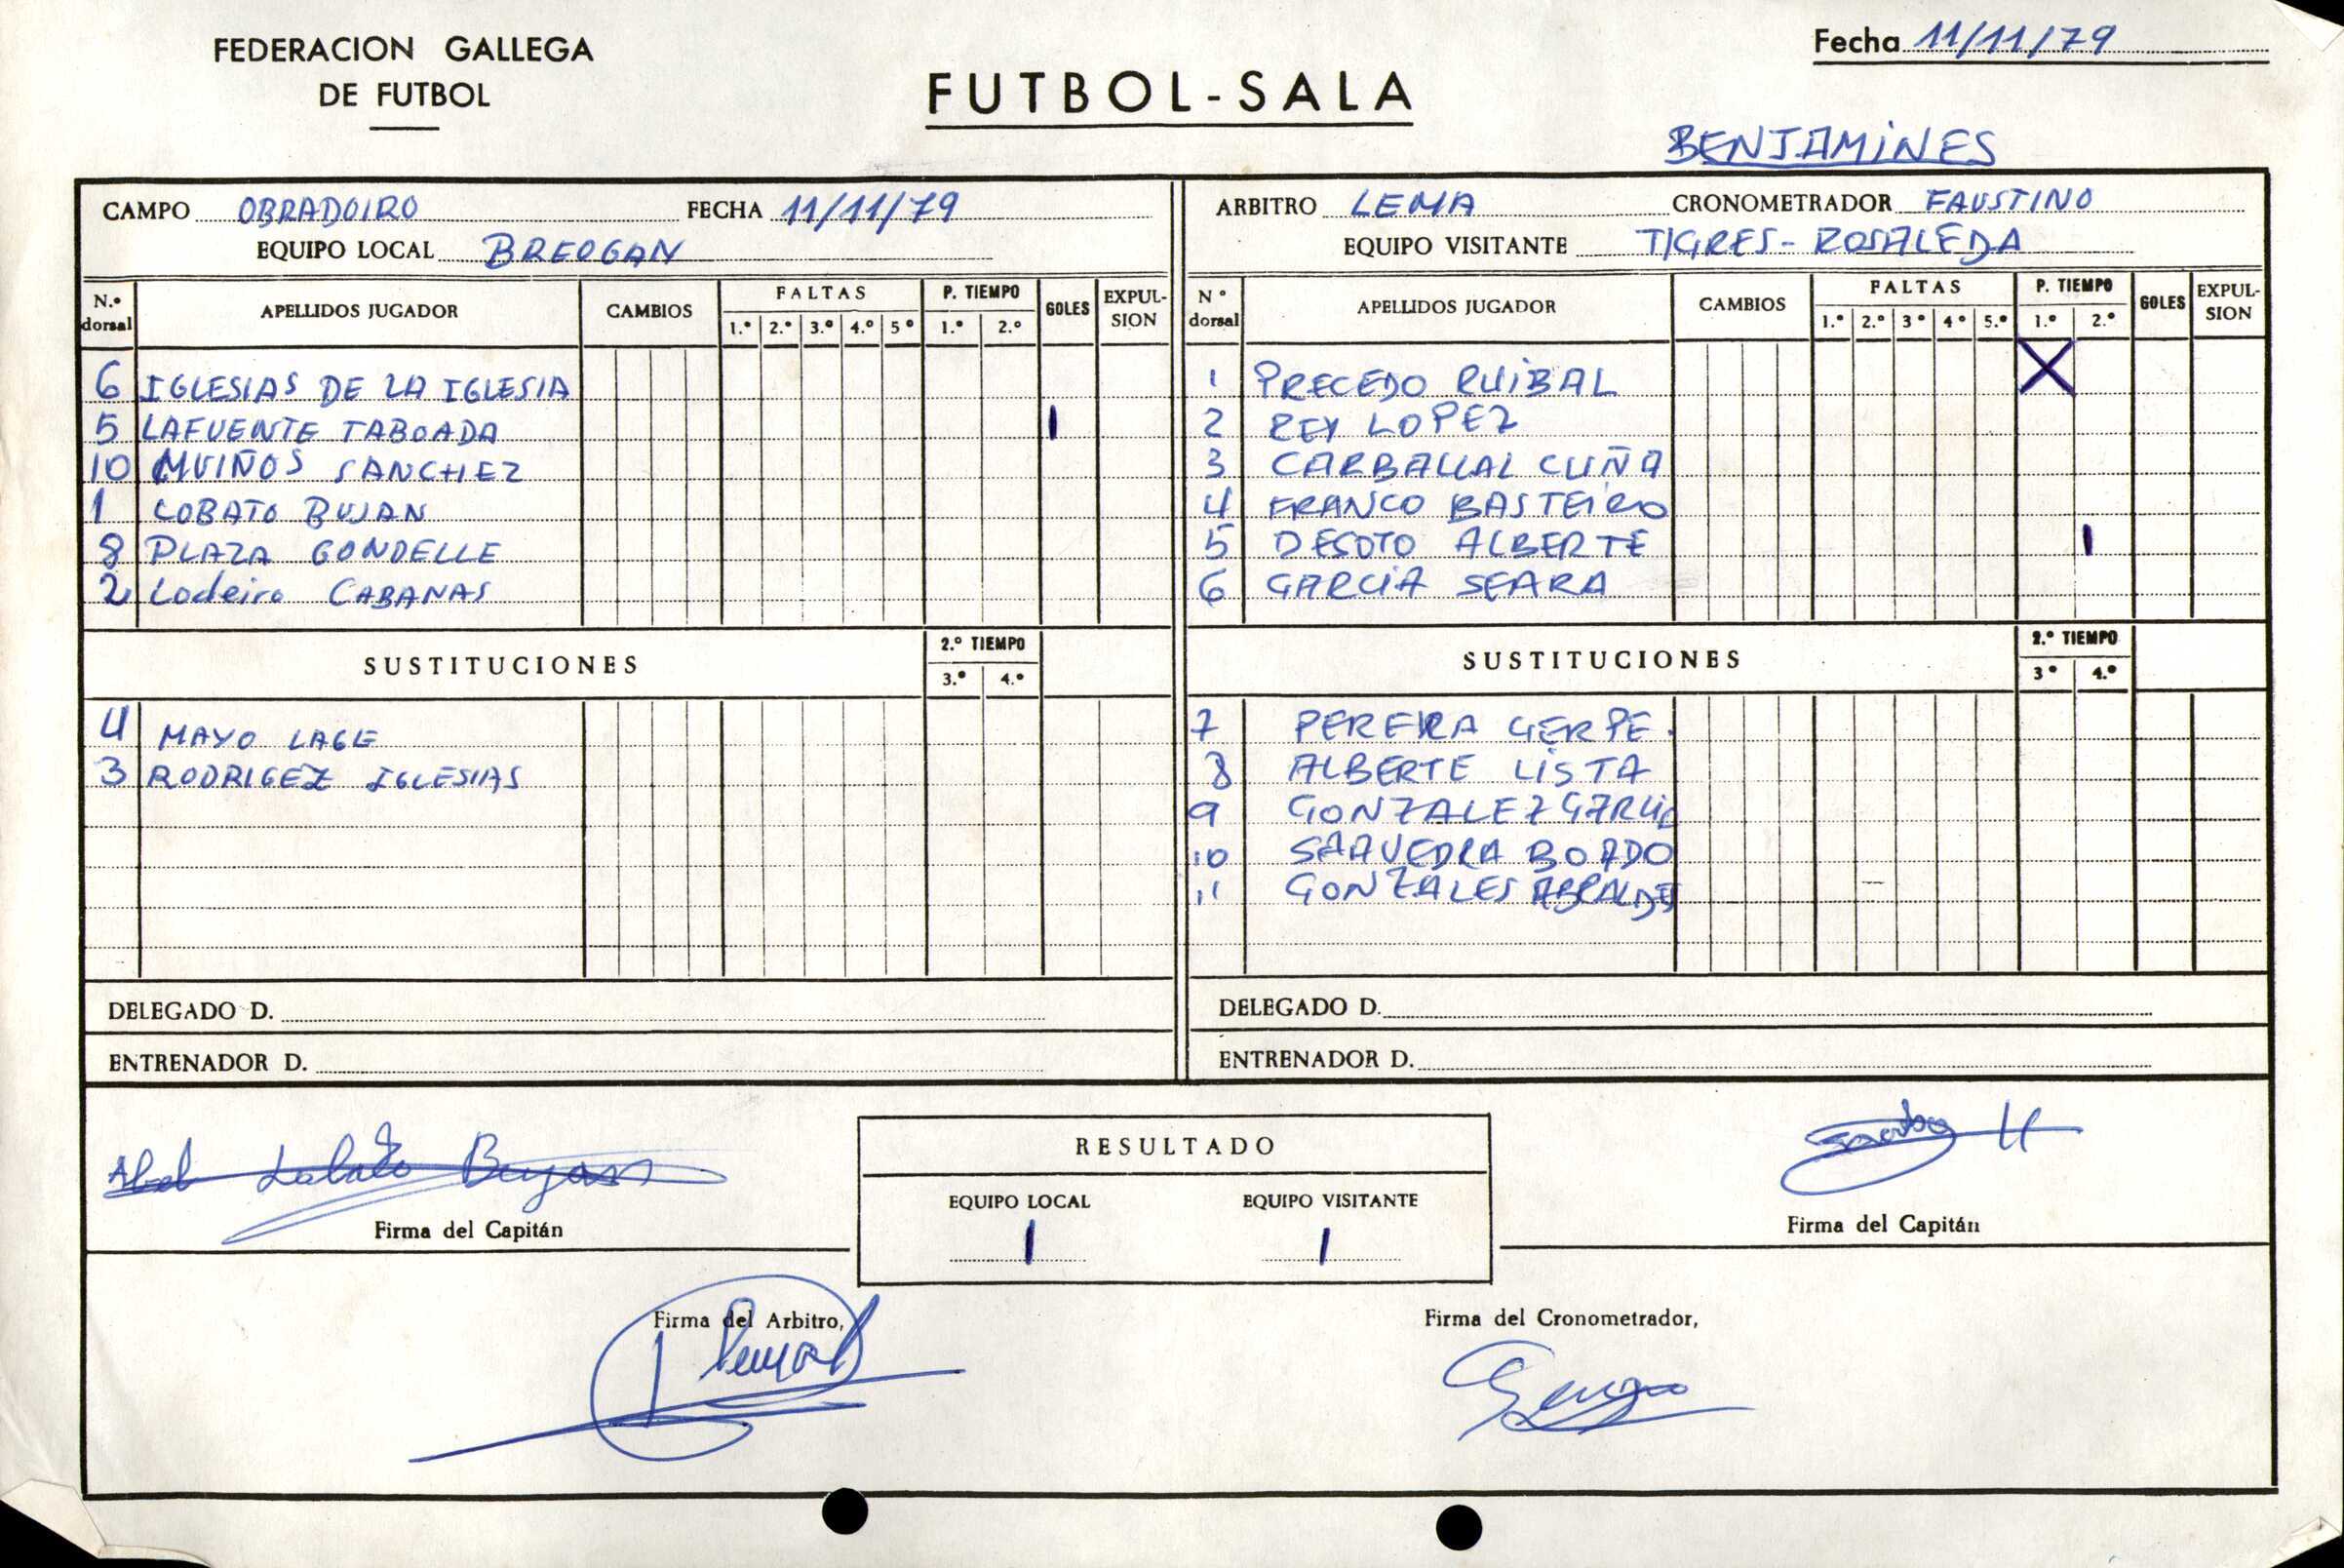 FEDERACION GALLEGA
DE FUTBOL
FUTBOL-SALA
Fecha 11/11/79
BENJAMINES
CAMPO OBRADOIRO FECHA 11/11/79
EQUIPO LOCAL BREOGAN
ARBITRO LEMA CRONOMETRADOR FAUSTINO
EQUIPO VISITANTE TIGRES-ROSALEDA
N.º dorsal APELLIDOS JUGADOR CAMBIOS FALTAS 1.º 2.º 3.º 4.º 5º P. TIEMPO 1.º 2.º GOLES EXPULSION
6 IGLESIAS DE LA IGLESIA
5 LAFUENTE TABOADA I
10 MUIÑOS SANCHEZ
1 LOBATO BUJAN
8 PLAZA GONDELLE
2 Lodeiro CABANAS
SUSTITUCIONES 2.º TIEMPO 3.º 4.º
4 MAYO LAGE
3 RODRIGEZ IGLESIAS
DELEGADO D.
ENTRENADOR D.
Nº dorsal APELLIDOS JUGADOR CAMBIOS FALTAS 1.º 2.º 3º 4º 5.º P. TIEMPO 1.º 2.º GOLES EXPULSION
1 PRECEDO RUIBAL X
2 REY LOPEZ
3 CARBALLAL CUÑA
4 FRANCO BASTEIRO
5 DESOTO ALBERTE I
6 GARCIA SEARA
SUSTITUCIONES 2.º TIEMPO 3º 4.º
7 PEREIRA GERPE.
8 ALBERTE LISTA
9 GONZALEZ GARCIA
10 SAAVEDRA BOADO
11 GONZALES ABRALDES
DELEGADO D.
ENTRENADOR D.
Abel Lobato Bujan
Firma del Capitán
RESULTADO
EQUIPO LOCAL EQUIPO VISITANTE
1 1
Firma del Capitán
Firma del Arbitro,
Firma del Cronometrador,